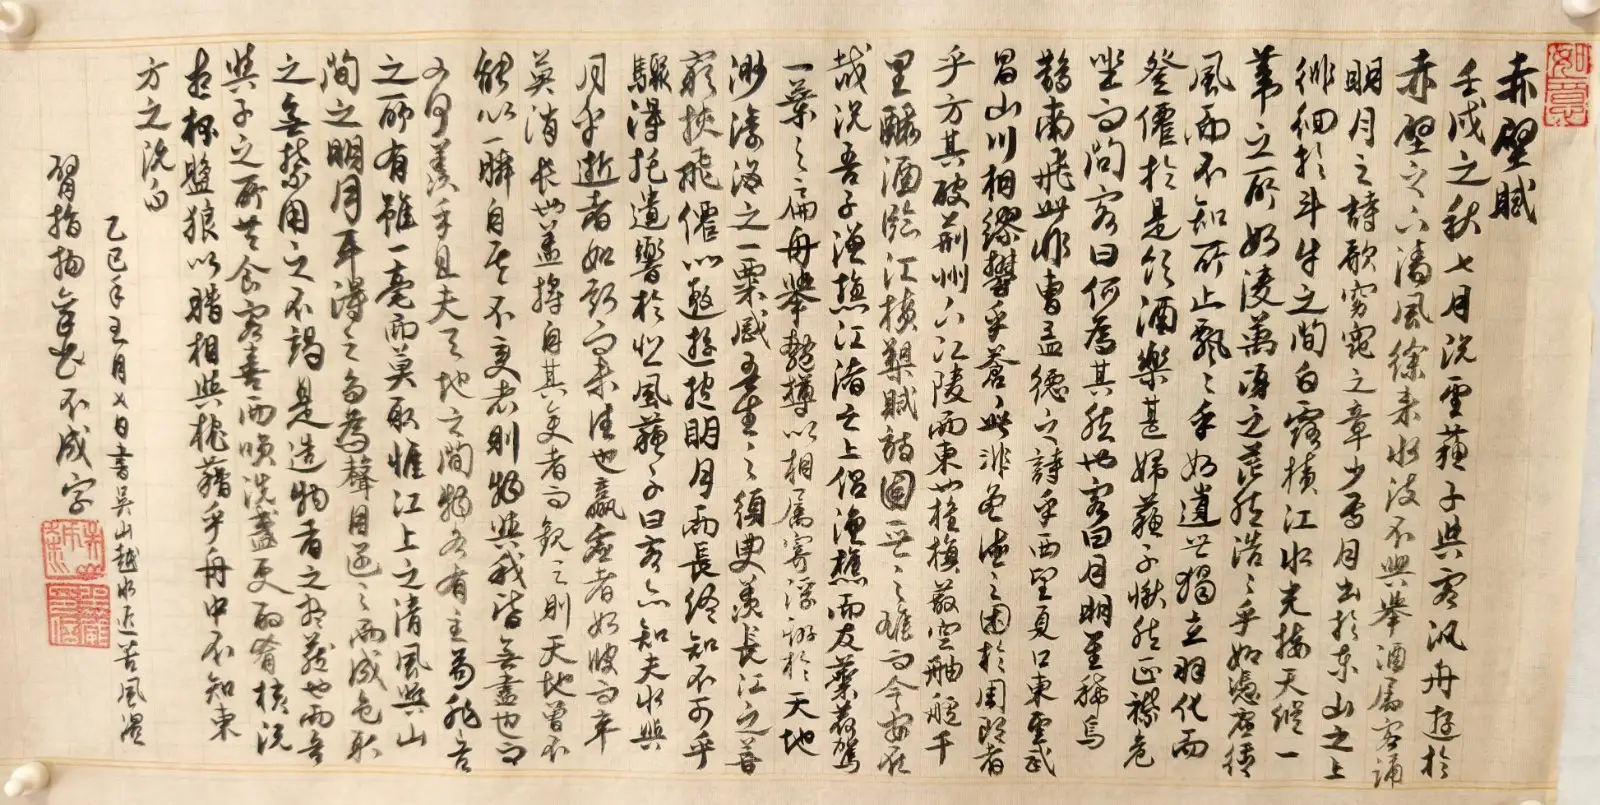 赤壁賦
壬戌之秋七月既望蘇子與客汎舟遊於
赤壁之下清風徐來水波不興舉酒屬客誦
明月之詩歌窈窕之章少焉月出於東山之上
徘徊於斗牛之間白露橫江水光接天縱一
葦之所如淩萬頃之茫然浩々乎如馮虛御
風而不知所止飄々乎如遺世獨立羽化而
登僊於是飲酒樂甚
愀然正襟危
坐而問客曰何為其然也客曰月明星稀烏
鵲南飛此非曹孟德之詩乎西望夏口東望武
昌山川相繆鬱乎蒼々此非孟德之困於周郎者
乎方其破荊州下江陵而東也舳艫千
里釃酒臨江橫槊賦詩固一世之雄而今安在
哉況吾子漁樵江渚之上侶魚
駕
一葉之扁舟舉匏樽以相屬寄浮游於天地
渺滄海之一粟哀吾生之須臾羨長江之
窮挾飛僊以遨遊抱明月而長終知不可乎
驟得託遺響於悲風蘇子曰客亦知夫水與
月乎逝者如斯而未嘗往也贏虛者如彼而卒
莫消長也蓋將自其變者而觀之則天地曾不
能以一瞬自其不變者則物與我皆無盡也而
又何羨乎且夫天地之間物各有主苟非吾
之所有雖一毫而莫取惟江上之清風與山
間之明月耳得之而為聲目遇之而成色取
之無禁用之不竭是造物者之無藏也而吾
與子之所共食客喜而笑洗盞更酌肴核既
盡杯盤狼以藉相與枕藉乎舟中不知東
方之既白
乙巳年五月七日書吳山越水近苦風濕
臂指拘
不成字
如意